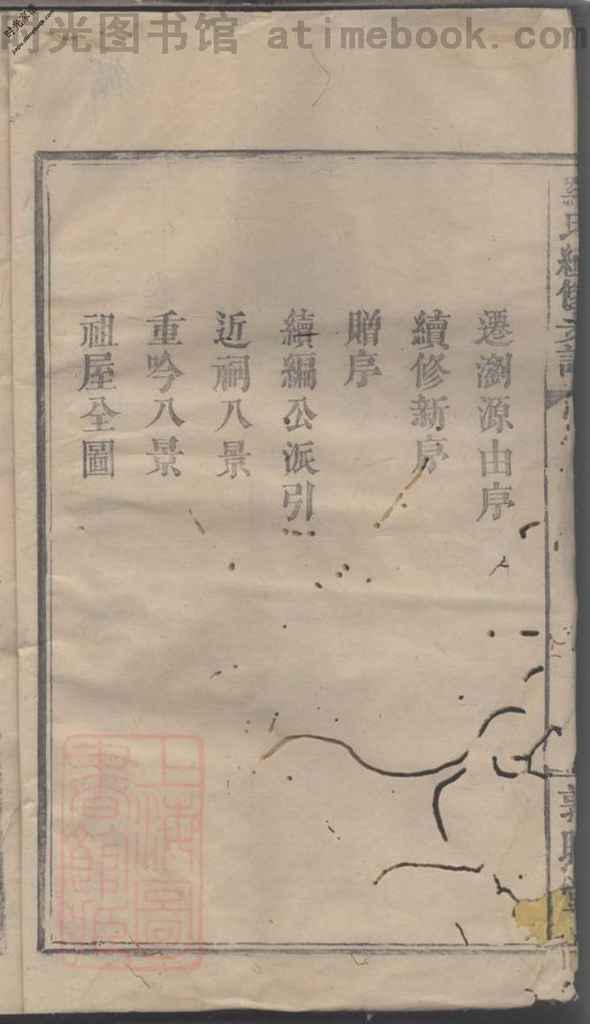 时光图书馆 atimebook.com
遷瀏源由序
續修新序
贈序
續編公派引
近祠八景
重吟八景
祖屋全圖
上海圖書館藏